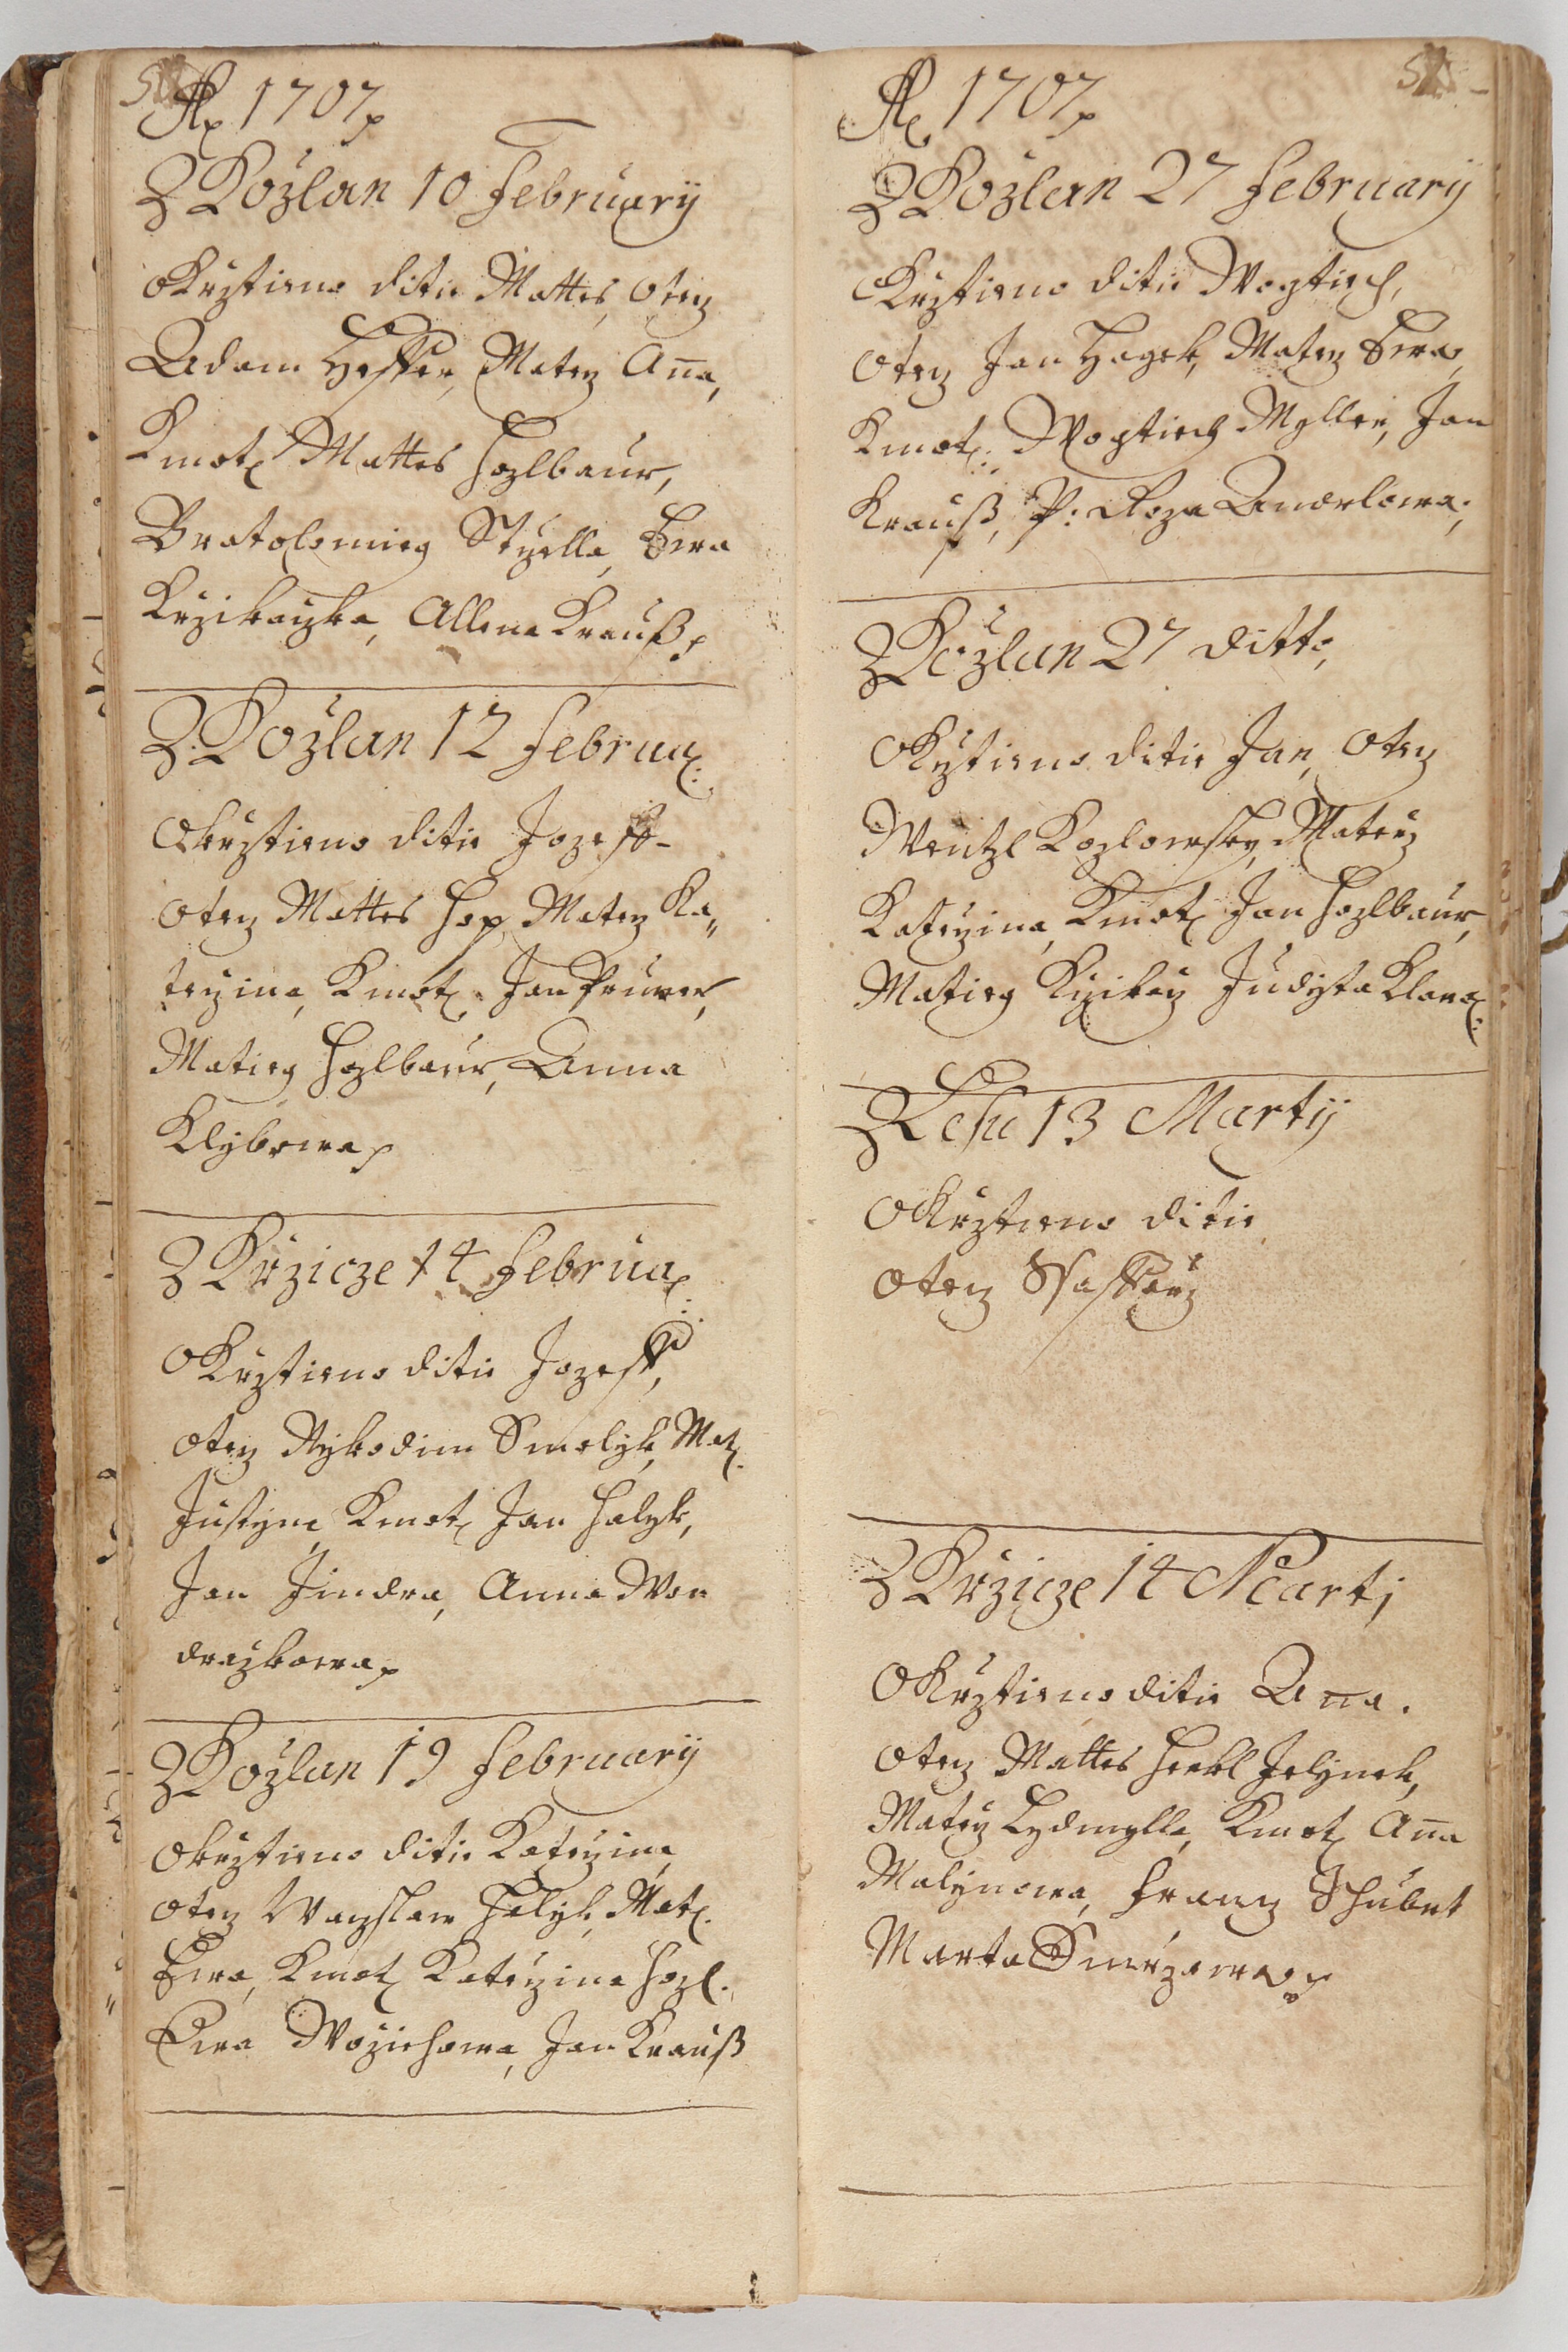 Ao 1707
Z Kozlan 10 February
Okrztieno ditie Mattes, Otecz
Adam Hoffer, Matez Aña,
Kmotr Mattes Hozlbaur,
Bratolomieg Stzella, Ewa
Krzikawzka, Allena Krauß
Z Kozlan 12 Februa:
Okrztieno ditie Jozeff
Otecz Mattes Hop, Matez Ka„
trzina, Kmotr. Jan Pruner,
Matieg Hozlbaur, Anna
Klybowa
Z Krzicze 14 Februa:
Okrztieno ditie Jozeff,
Otecz Nykodim Smolyk, Mat.
Justyna Kmotr Jan Halyk,
Jan Jindra, Anna Won
draczkowa
Z Kozlan 19 February
Okrztieno ditie Katrzina
Otecz Waczslaw Halyk, Mat.
Ewa, Kmotr Katrzina Hozl.
Ewa Woziehowa, Jan Krauß
Ao 1707
Z Kozlan 27 February
Okrztieno ditie Wogtiech,
Otecz Jan Hagek, Matez Ewa,
Kmotr: Wogtiech Myller, Jan
Krauß, P: Roza Anderlowa,
Z Kozlan 27 ditto,
Okrztieno ditie Jan, Otecz
Wentzl Kozlowsky, Matez
Katrzina, Kmotr Jan Hozlbaur,
Matieg Krzikaw Judyta Klara:
Z Lhu 13 Marty
Okrztieno ditie
Otecz
Z Krzicze 14 Marti
Okrztieno ditie Ana.
Otecz Mattes Jelynek,
Matez Lydmylla, Kmotr Aña
Malynowa, Francz Schubert
Marta Smrzowa